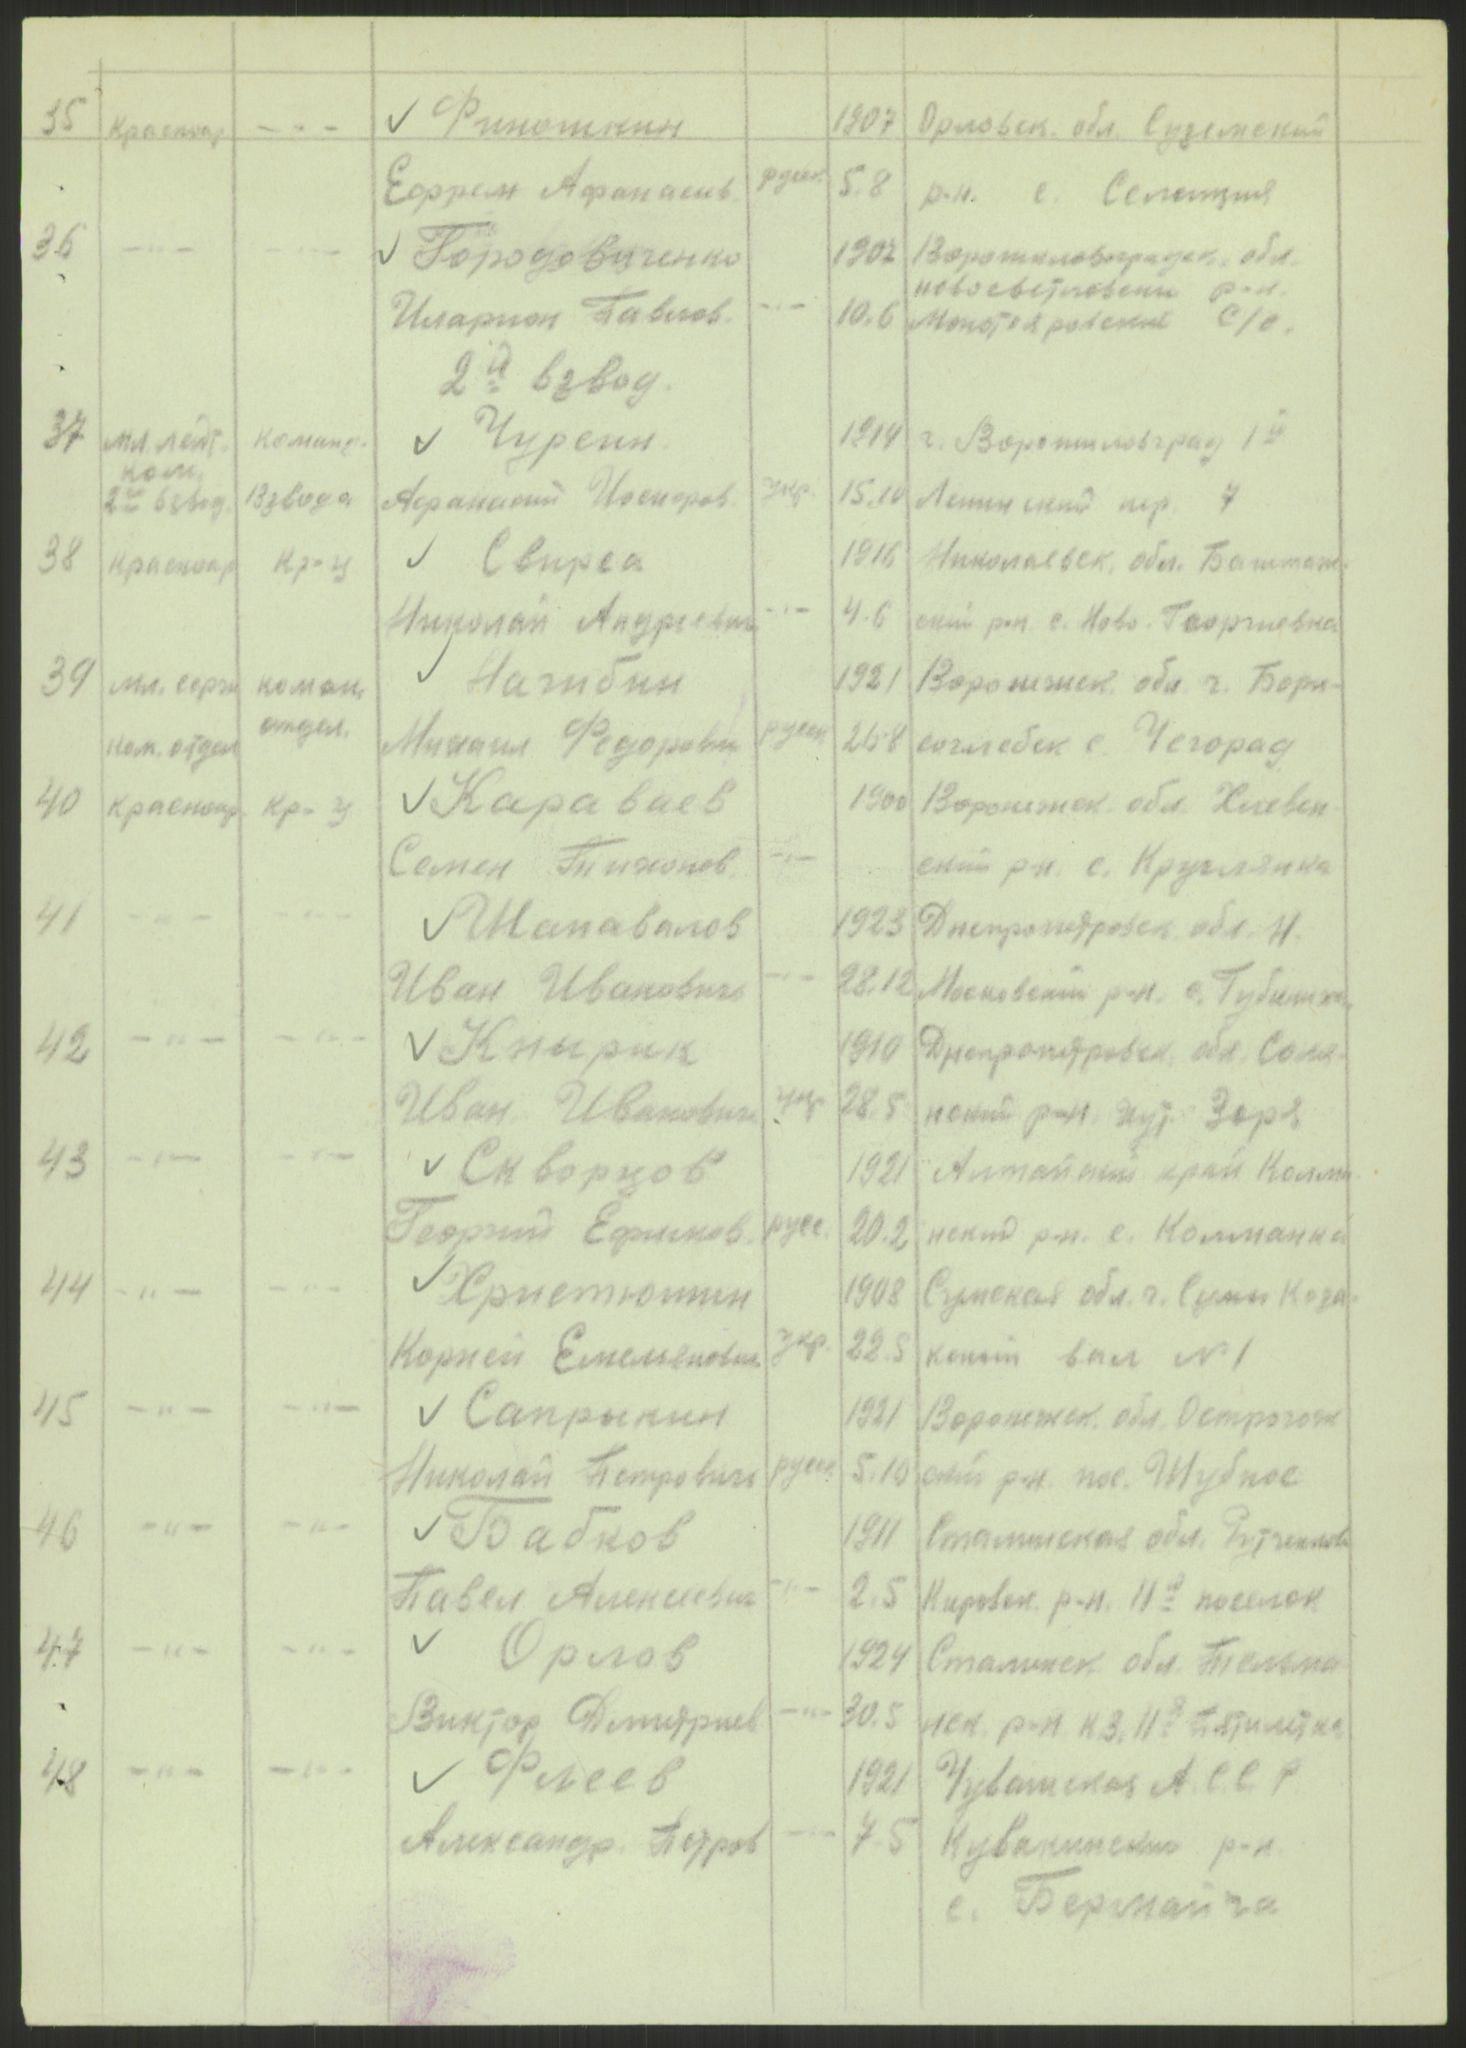 35 Красноар - " - ✓ Финошкин 1907 Орловск. обл. Суземский
Ефрем Афанасив. русск. 5.8 р-н. с. Селищия
36 - " - - " - ✓ Городовиченко 1907 Ворошиловградск. обл.
новосветловски р-н.
Иларион Павлов. - " - 10.6 С/с.
2й взвод.
37 мл. лейт. команд. ✓ Чурсин. 1914 г. Ворошиловград 1й
ком.
2й взвод. Взвода Афанасий укр. 15.10 Ленинский пер. 7
38 красноар кр-ц ✓ Свирса 1916 Николаевск. обл. Баштан-
Николай Андреевич - " - 4.6 ский р-н. с. Ново. Георгиевка
39 мл. серж коман. ✓ Нагибин 1921 Воронежск. обл. г. Бори-
ком. отдел отдел. Михаил Федорович русск 26.8 соглебск с. Чегорад
40 красноар. кр-ц ✓ Караваев 1900 Воронежск. обл. Хлевен-
Семен Тихонов. - " - ский р-н. с. Круглянка
41 - " - - " - ✓ Шаповалов 1923 Днепропетровск. обл. Н.
Иван Иванович - " - 28.12 Московский р-н. с.
42 - " - - " - ✓ Кнырик 1910 Днепропетровск. обл. Соля-
Иван Иванович укр. 28.5 нский р-н. хут. Заря
43 - " - - " - ✓ Скворцов 1921 Алтайский край Колма-
Георгий Ефимов. русс. 20.2 нский р-н. с. Колманка
44 - " - - " - ✓ Христюшин 1908 Сумская обл. г. Сумы Каза-
Корней Емельянович укр. 22.5 кский вал № 1
45 - " - - " - ✓ Сапрыкин 1921 Воронежск. обл. Острогож
Николай Петрович русск 5.10 ский р-н. пос. Шубное
46 - " - - " - ✓ Бабков 1911 Сталинская обл. Рутченково
Павел Алексеевич - " - 2.5 Кировск. р-н. 11й поселок
47 - " - - " - ✓ Орлов 1924 Сталинск. обл. Тельма-
Виктор Дмитриев - " - 30.5 нск. р-н к.з. 11я Пятилетка
48 - " - - " - ✓ Флеев 1921 Чувашская А.С.С.Р.
Александр. Петров - " - 7.5 Кувакинский р-н.
с.